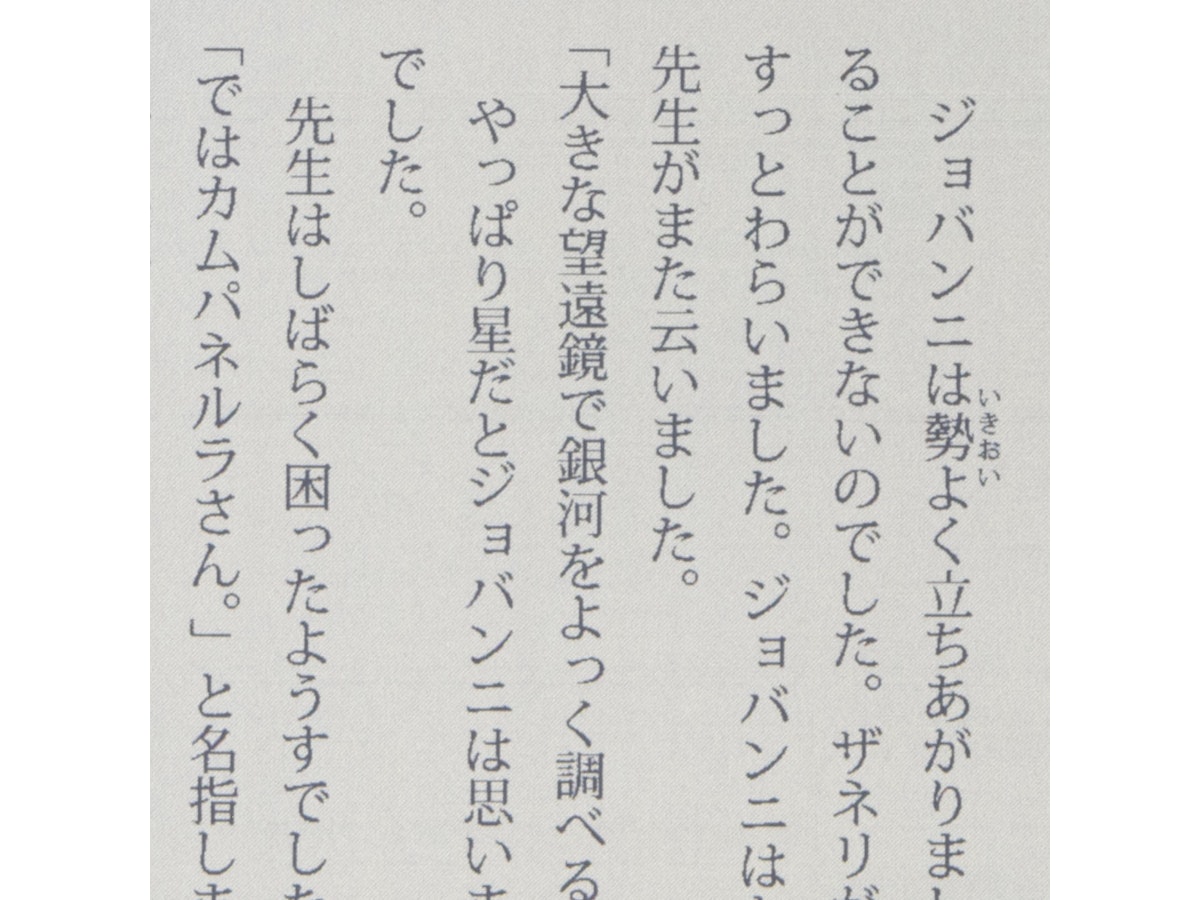 ジョバンニは勢よく立ちあがりまし
いきおい
ることができないのでした。ザネリが
すっとわらいました。ジョバンニは
先生がまた云いました。
「大きな望遠鏡で銀河をよっく調べる
やっぱり星だとジョバンニは思いま
でした。
先生はしばらく困ったようすでした
「ではカムパネルラさん。」と名指しま